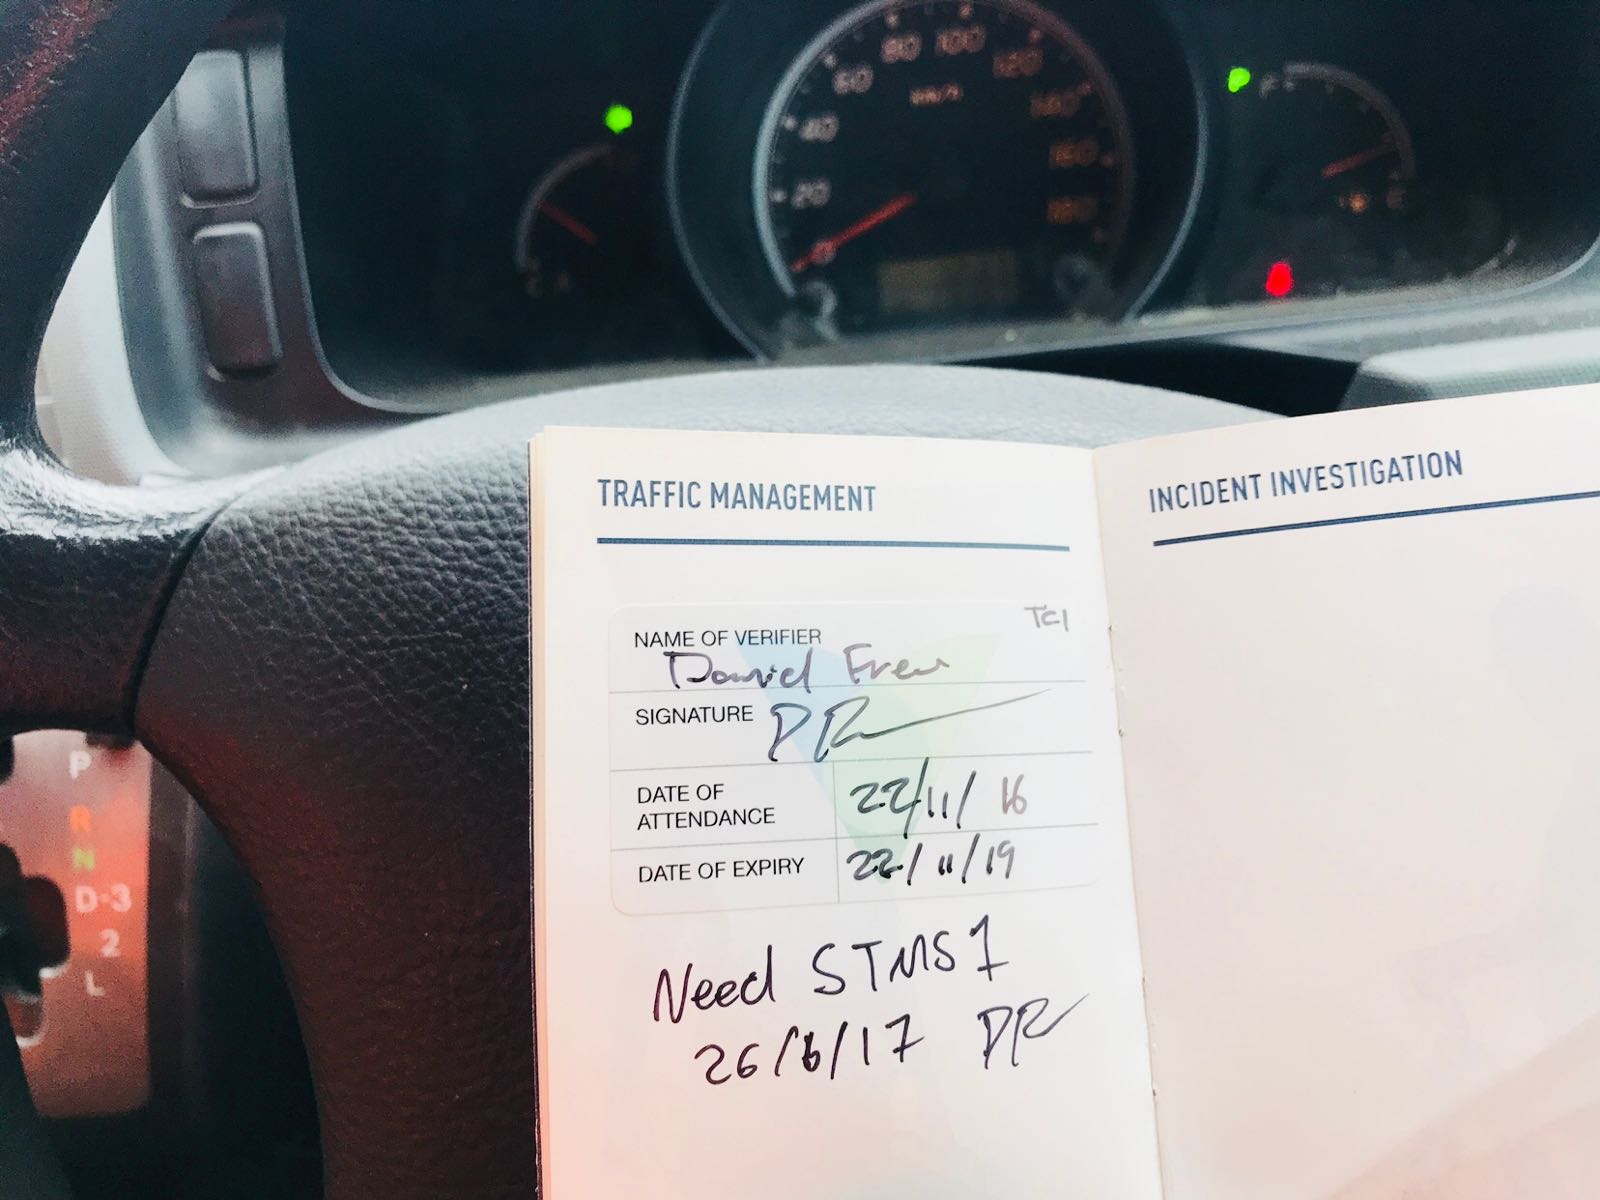 80 100
60 120
km/h
40 140
160
20
180
0
F
E
C
P
R
N
D-3
2
L
TRAFFIC MANAGEMENT
TC1
NAME OF VERIFIER
David Frew
SIGNATURE
DATE OF ATTENDANCE 22/11/16
DATE OF EXPIRY 22/11/19
Need STMS 1
26/6/17
INCIDENT INVESTIGATION